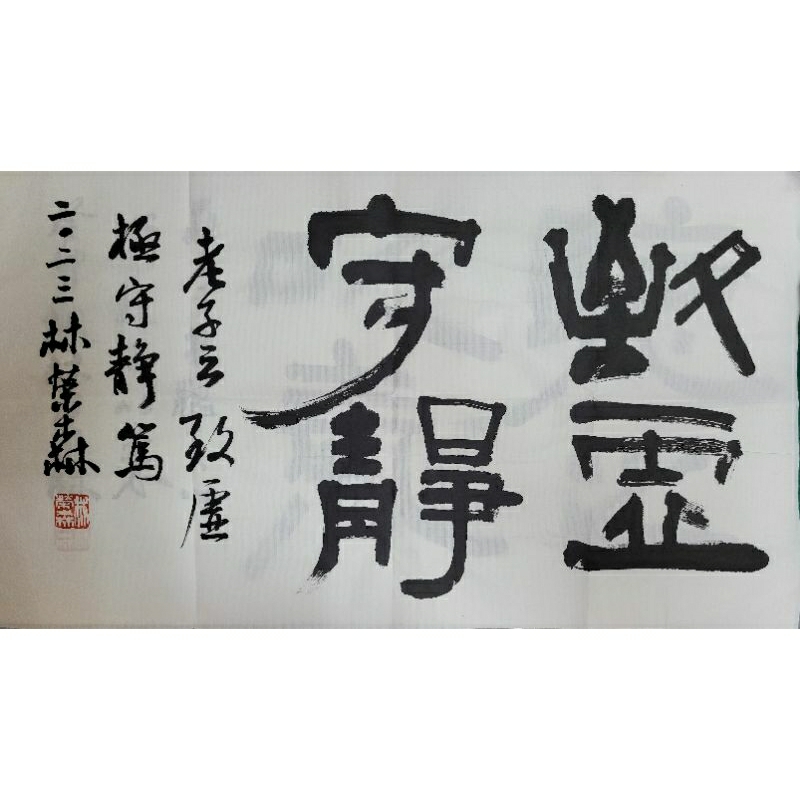 致虚
守靜
老子云致虚
極守靜篤
二〇二三林榮森
林榮森